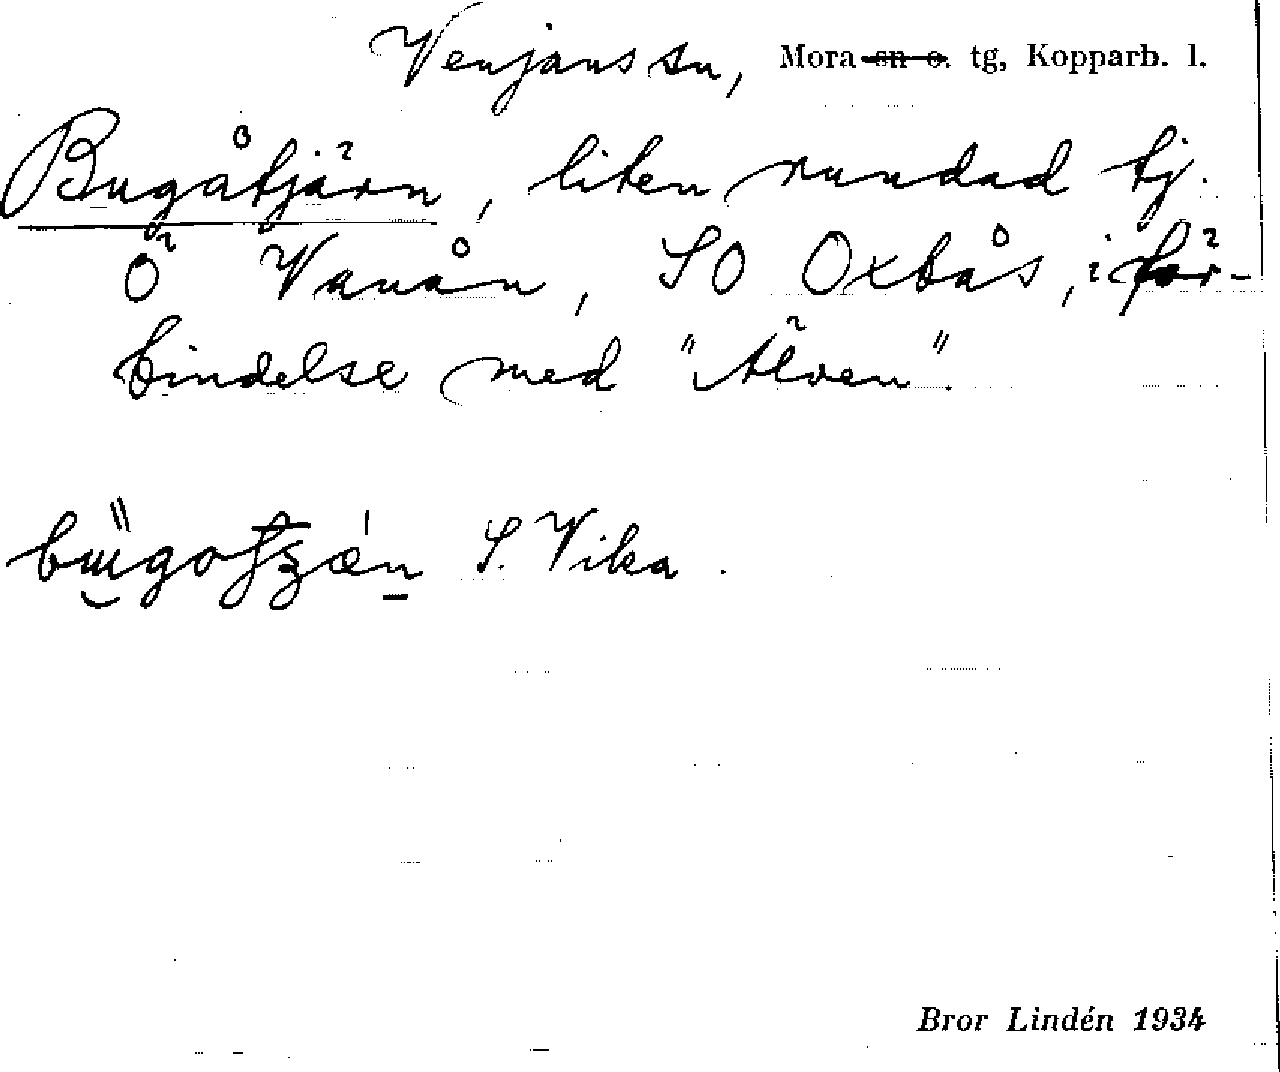 Venjans sn, Mora ~~sn o.~~ tg, Kopparb. l.
Bugåtjärn, liten rundad tj.
Ö Vanån, SO Oxbås, i för-
bindelse med "Älven".
S. Vika.
Bror Lindén 1934